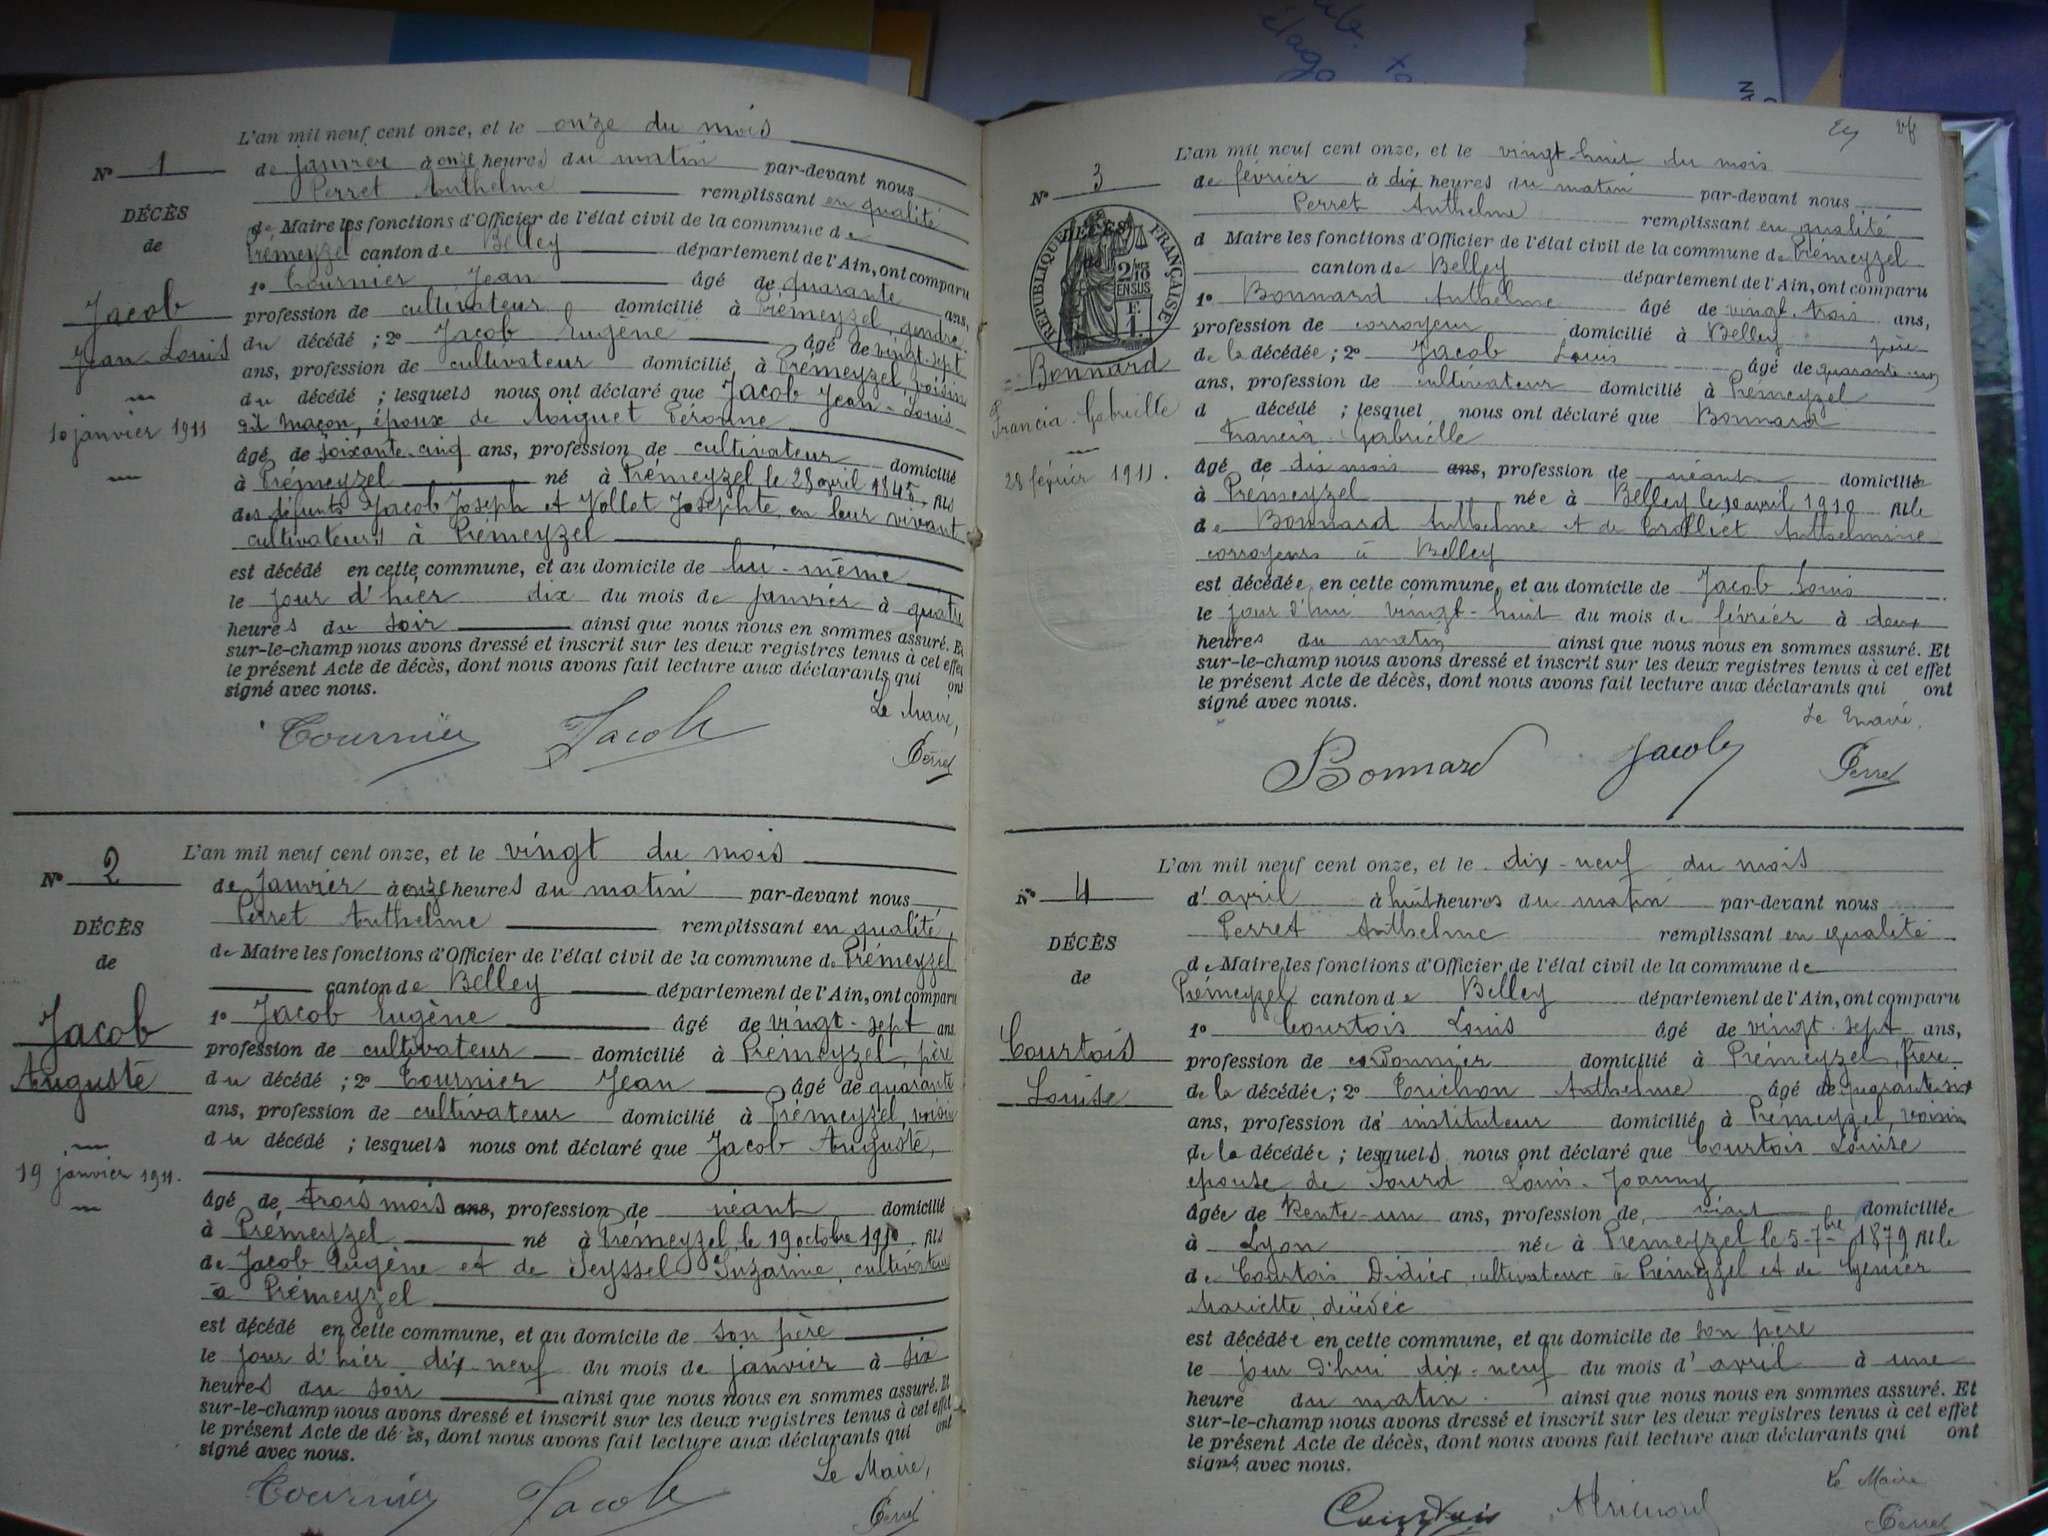 L'an mil neuf cent onze, et le onze du mois
N° 1
de janvier à onze heures du matin par-devant nous
Perret Anthelme remplissant en qualité
DÉCÈS
de
de Maire les fonctions d'Officier de l'état civil de la commune de
Prémeyzel canton de Belley département de l'Ain, ont comparu
1° Tournier Jean âgé de quarante ans,
Jacob
Jean-Louis
profession de cultivateur domicilié à Prémeyzel, gendre
du décédé ; 2° Jacob Eugène âgé de vingt-sept
ans, profession de cultivateur domicilié à Prémeyzel, voisin
du décédé ; lesquels nous ont déclaré que Jacob Jean-Louis
10 janvier 1911
dit Maçon, époux de Péronne
âgé de soixante-cinq ans, profession de cultivateur domicilié
à Prémeyzel né à Prémeyzel le 28 avril 1845, fils
des défunts Jacob Joseph et Vollet Josephte, en leur vivant
cultivateurs à Prémeyzel
est décédé en cette commune, et au domicile de lui-même
le jour d'hier dix du mois de janvier à quatre
heures du soir ainsi que nous nous en sommes assuré. Et
sur-le-champ nous avons dressé et inscrit sur les deux registres tenus à cet effet
le présent Acte de décès, dont nous avons fait lecture aux déclarants qui ont
signé avec nous.
Le Maire,
Tournier Jacob Perret
L'an mil neuf cent onze, et le vingt du mois
N° 2
de janvier à onze heures du matin par-devant nous
Perret Anthelme remplissant en qualité
DÉCÈS
de
de Maire les fonctions d'Officier de l'état civil de la commune de Prémeyzel
canton de Belley département de l'Ain, ont comparu
1° Jacob Eugène âgé de vingt-sept ans
Jacob
Auguste
profession de cultivateur domicilié à Prémeyzel, père
du décédé ; 2° Tournier Jean âgé de quarante
ans, profession de cultivateur domicilié à Prémeyzel, voisin
du décédé ; lesquels nous ont déclaré que Jacob Auguste,
19 janvier 1911.
âgé de trois mois ans, profession de néant domicilié
à Prémeyzel né à Prémeyzel, le 19 octobre 1910, fils
de Jacob Eugène et de Seyssel Suzanne, cultivateurs
à Prémeyzel
est décédé en cette commune, et au domicile de son père
le jour d'hier dix-neuf du mois de janvier à six
heures du soir ainsi que nous nous en sommes assuré. Et
sur-le-champ nous avons dressé et inscrit sur les deux registres tenus à cet effet
le présent Acte de décès, dont nous avons fait lecture aux déclarants qui ont
signé avec nous.
Le Maire,
Tournier Jacob Perret
L'an mil neuf cent onze, et le vingt-huit du mois
N° 3
de février à dix heures du matin par-devant nous
Perret Anthelme remplissant en qualité
DÉCÈS
RÉPUBLIQUE FRANÇAISE
2/10 EN SUS
F.
1.
d Maire les fonctions d'Officier de l'état civil de la commune de Prémeyzel
canton de Belley département de l'Ain, ont comparu
1° Bonnard Anthelme âgé de vingt-trois ans,
profession de corroyeur domicilié à Belley père
Bonnard
Francia-Gabrielle
28 février 1911.
de la décédée ; 2° Jacob Louis âgé de quarante-un
ans, profession de cultivateur domicilié à Prémeyzel
d décédé ; lesquel nous ont déclaré que Bonnard
Francia-Gabrielle
âgé de dix mois ans, profession de néant domiciliée
à Prémeyzel née à Belley le 10 avril 1910 fille
de Bonnard Anthelme et de Trolliet Anthelmine
corroyeurs à Belley
est décédée en cette commune, et au domicile de Jacob Louis
le jour d'hui vingt-huit du mois de février à deux
heures du matin ainsi que nous nous en sommes assuré. Et
sur-le-champ nous avons dressé et inscrit sur les deux registres tenus à cet effet
le présent Acte de décès, dont nous avons fait lecture aux déclarants qui ont
signé avec nous.
Le Maire,
Bonnard Jacob Perret
L'an mil neuf cent onze, et le dix-neuf du mois
N° 4
d'avril à huit heures du matin par-devant nous
Perret Anthelme remplissant en qualité
DÉCÈS
de
de Maire les fonctions d'Officier de l'état civil de la commune de
Prémeyzel canton de Belley département de l'Ain, ont comparu
1° Courtois Louis âgé de vingt-sept ans,
Courtois
Louise
profession de domicilié à Prémeyzel, frère
de la décédée ; 2° Truchon Anthelme âgé de quarante-six
ans, profession d'instituteur domicilié à Prémeyzel, voisin
de la décédée ; lesquels nous ont déclaré que Courtois Louise
épouse de Louis-Joanny
âgée de trente-un ans, profession de néant domiciliée
à Lyon née à Prémeyzel le 5-7bre 1879 fille
de Courtois Didier, cultivateur à Prémeyzel et de
Mariette, décédée
est décédée en cette commune, et au domicile de son père
le jour d'hui dix-neuf du mois d'avril à une
heure du matin ainsi que nous nous en sommes assuré. Et
sur-le-champ nous avons dressé et inscrit sur les deux registres tenus à cet effet
le présent Acte de décès, dont nous avons fait lecture aux déclarants qui ont
signé avec nous.
Le Maire
Courtois Perret